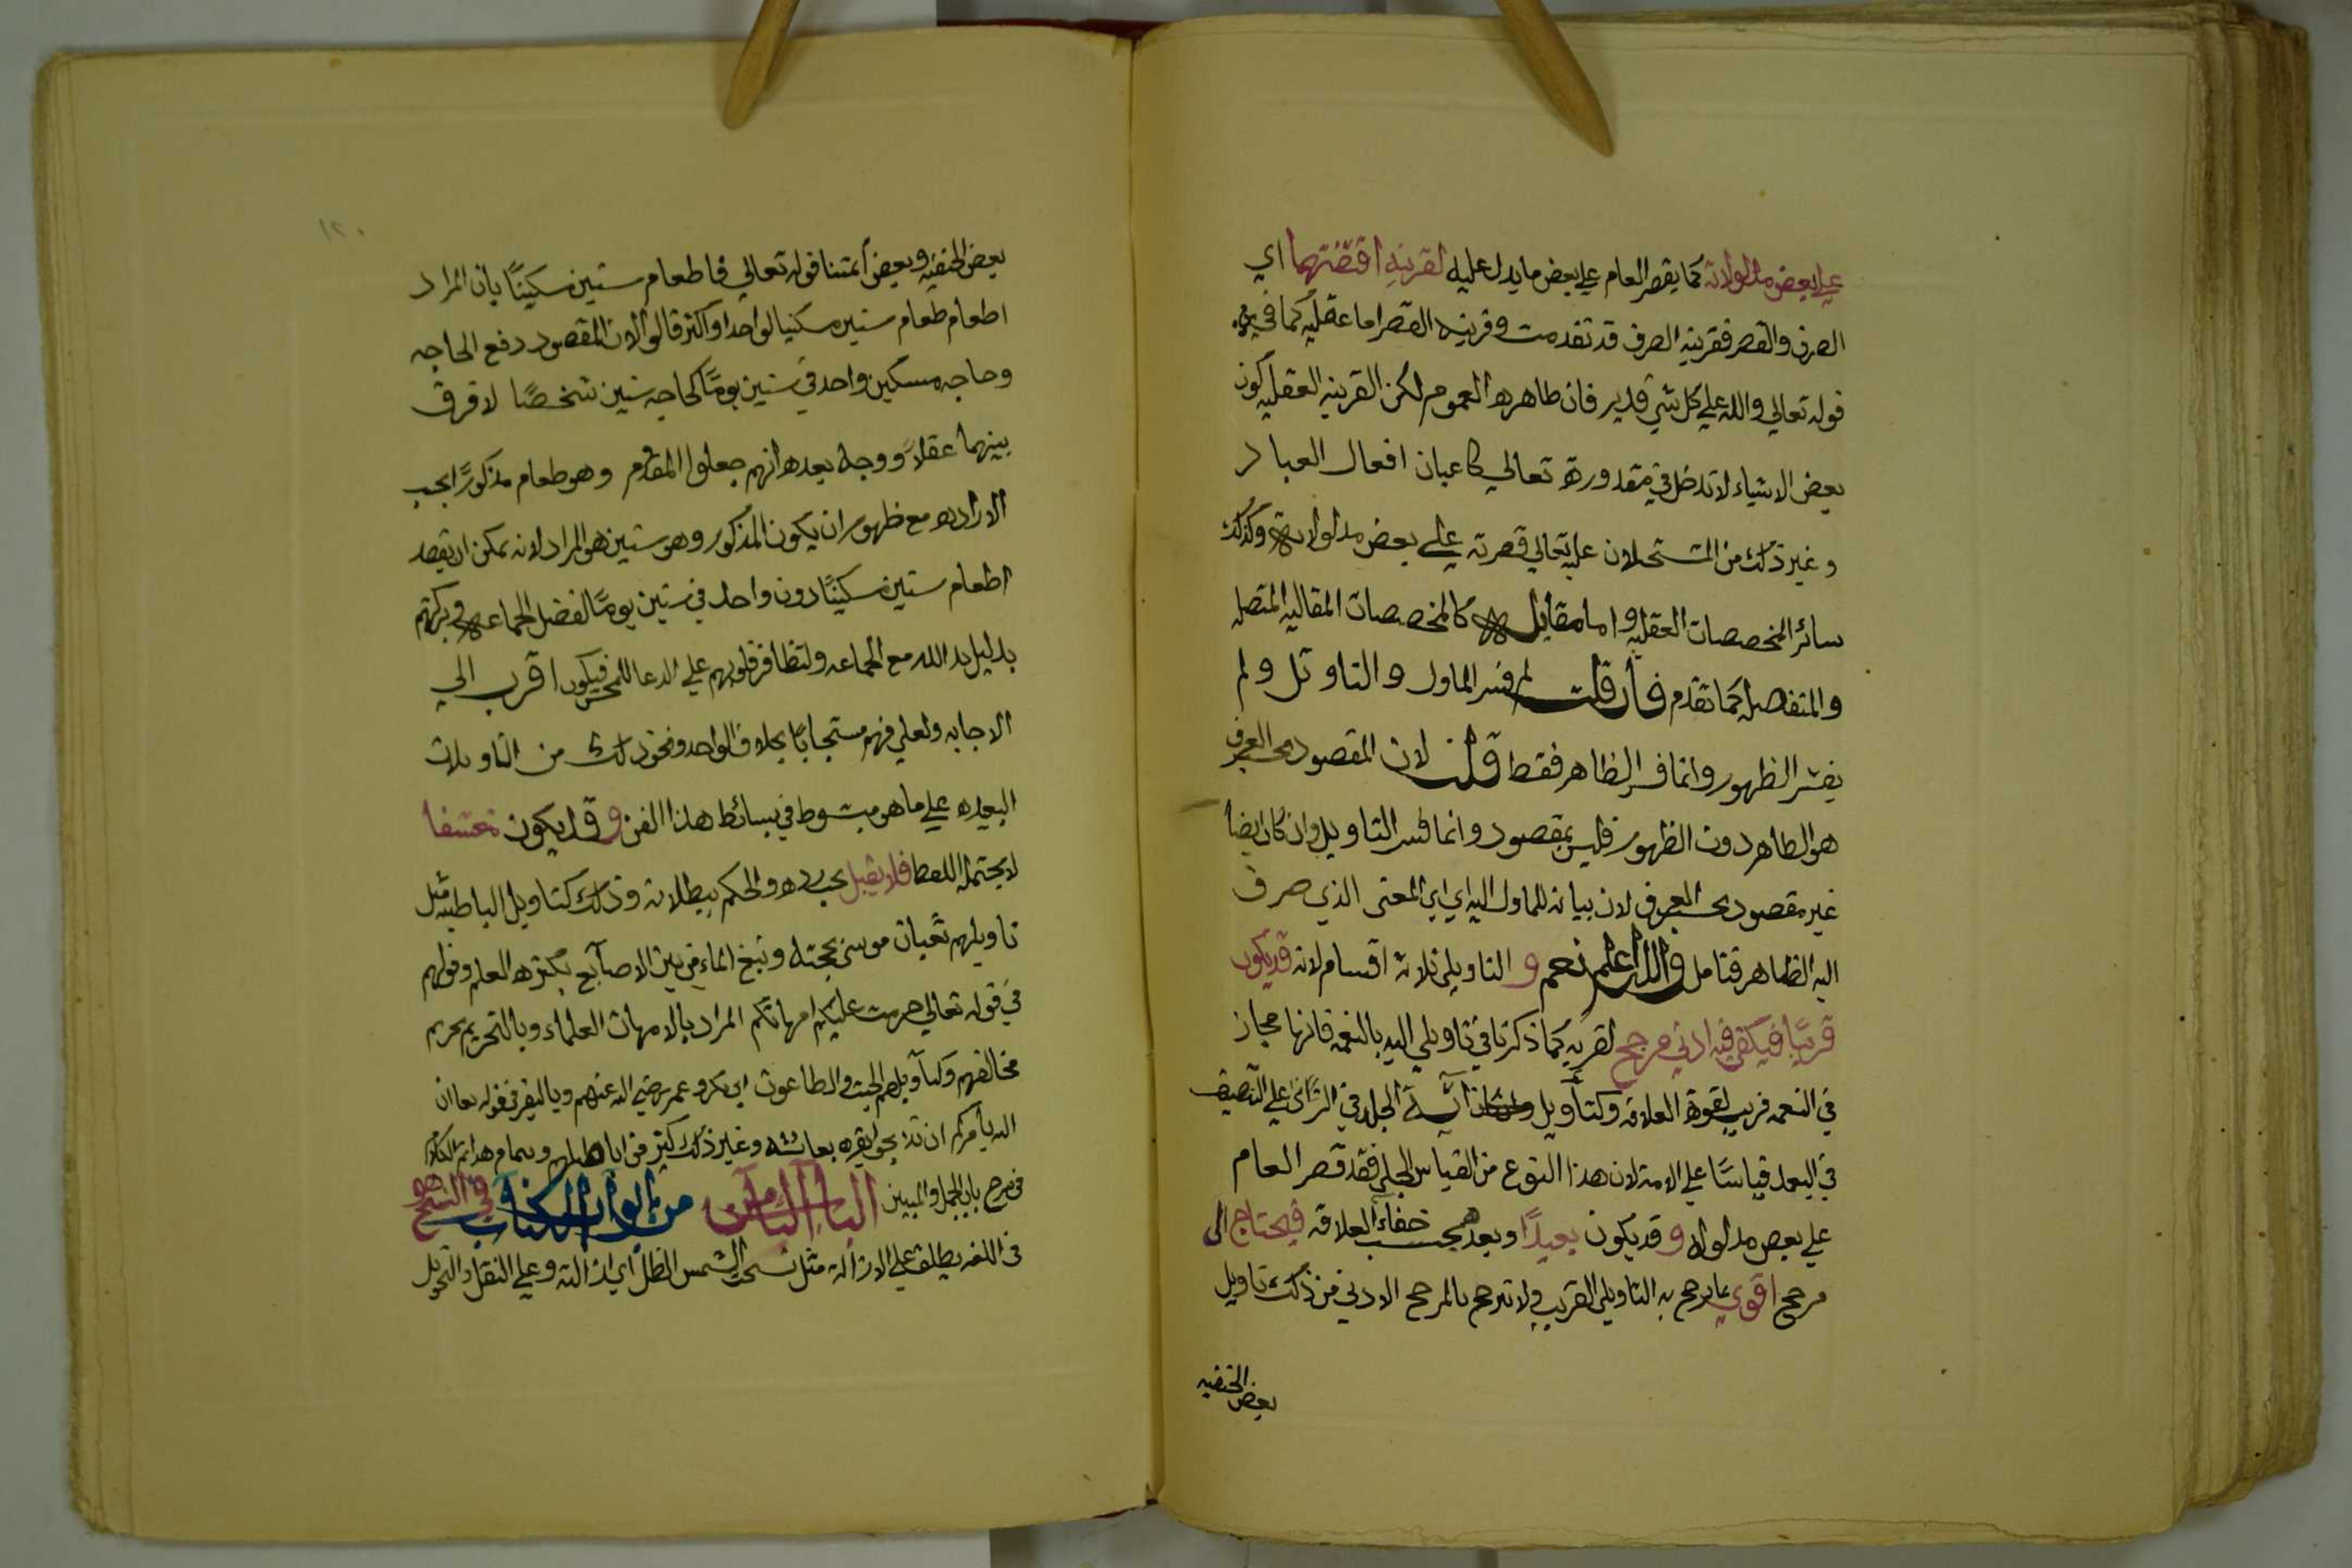 على بعض مدلولاته كما يقصر العام على بعض ما يدل عليه لقرينه اقتضتهما اي
الصرف والقصر فقرينه الصرف قد تقدمت وقرينه القصر اما عقليه كما في
قوله تعالى والله على كل شي قدير فان ظاهره العموم لكن القرينه العقليه كون
بعض الاشياء لا تدخل في مقدورة تعالي كاعيان افعال العباد
وغير ذلك من المستحيلات عليه تعالي قصرته على بعض مدلولاته وكذلك
سائر المخصصات العقليه واما مقاليه كالمخصصات المقاليه المتصله
والمنفصله كما تقدم فان قلت لم فسر الماول والتاويل ولم
يفسر الظهور وانما فسر الظاهر فقط قلت لان المقصود بحسب العرف
هو الظاهر دون الظهور فليس بمقصود وانما فسر التاويل وان كان ايضا
غير مقصود بحسب العرف لان بيانه للماول اليه اي المعنى الذي صرف
اليه الظاهر فتامل والله اعلم نعم و التاويل ثلاثة اقسام لانه قد يكون
قريبًا فيكفي فيه ادني مرجح لقربه كما ذكرنا في تاويل اليد بالنعمه فانها مجاز
في النعمه قريب لقوة العلاقه وكتأويل آية الجلد في الزاني على التنصيف
في العبد قياسًا على الامة لان هذا النوع من القياس الجلي فقد قصر العام
على بعض مدلوله و قد يكون بعيدًا وبعده بحسب خفاء العلاقه فيحتاج الى
مرجح اقوي مما يرجح به التاويل القريب ولا يترجح بالمرجح الادني فمن ذلك تاويل
بعض الحنفيه
١٢٠
بعض الحنفيه وبعض أئمتنا قوله تعالي فاطعام ستين مسكينًا بان المراد
اطعام طعام ستين مسكينا لواحد او اكثر قالوا لان المقصود دفع الحاجه
وحاجه مسكين واحد في ستين يومًا كحاجه ستين شخصًا لا فرق
بينهما عقلاً ووجه بعده انهم جعلوا المقدم وهو طعام مذكورًا بحسب
الاراده مع ظهور ان يكون المذكور وهو ستين هو المراد لانه يمكن ان يقصد
اطعام ستين مسكينًا دون واحد في ستين يومًا لفضل الجماعه وبركتهم
بدليل يد الله مع الجماعه ولتظافر قلوبهم على الدعا للمحسن فيكون اقرب الي
الاجابه ولعل فيهم مستجابًا بخلاف الواحد ونحو ذلك من التاويلات
البعيده على ما هو مبسوط في بسائط هذا الفن و قد يكون متعسفا
لا يحتمله اللفظ فلا يقبل يجب رده والحكم ببطلانه وذلك كتاويل الباطنيه مثل
تاويلهم ثعبان موسى بحجته ونبع الماء من بين الاصابع بكثره العلم وقولهم
في قوله تعالي حرمت عليكم امهاتكم المراد بالامهات العلماء وبالتحريم تحريم
مخالفتهم وكتأويلهم الجبت والطاغوت ابي بكر وعمر رضي الله عنهم وبالبقر في قوله تعا ان
الله يأمركم ان تذبحوا بقره بعائشه وغير ذلك كثير من اباطيلهم وبتمام هذا تم الكلام
في شرح باب المجمل والمبين الباب الثامن من ابواب الكتاب في النسخ وهو
في اللغه يطلق على الازالة مثل نسخت الشمس الظل اي ازالته وعلى النقل والتحويل